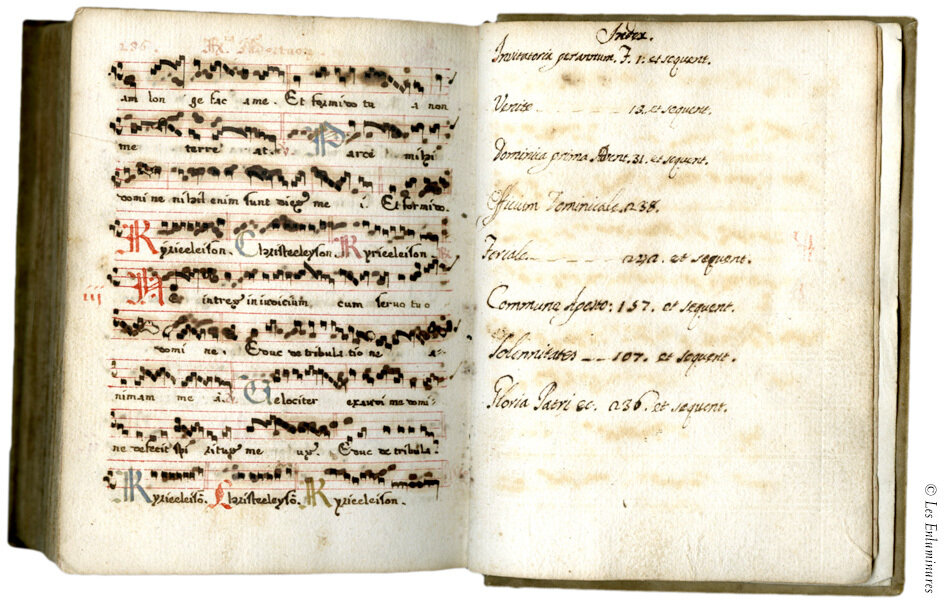 236.
am lon ge fac a me. Et formido tu a non
me terre at. Parce mihi
domine nihil enim sunt dies me i. Et formido.
Kyrieeleison. Christeeleyson. Kyrieeleison.
iij Ne intres in iudicium cum seruo tuo
domi ne. Educ de tribula tio ne a-
nimam me a. Uelociter exaudi me domi-
ne defecit spi ritus me us. Educ de tribula-
Kyrieeleisō. Christeeleysō. Kyrieeleison.
Index.
Inuitatoria per annum. F. 1. et sequent.
Venite 13. et sequent.
Dominica prima Aduent. 31. et sequent.
Officium Dominicale. 238.
Feriale 242. et sequent.
Commune Aposto: 157. et sequent.
Solennitates 107. et sequent.
Gloria Patri &c. 236. et sequent.
© Les Enluminures